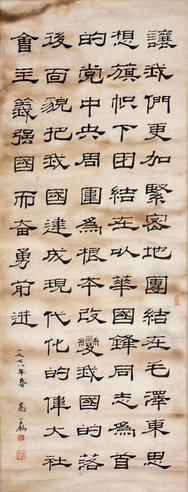 讓我們更加緊密地團結在毛澤東思
想旗帜下团結在以華國鋒同志為首
的党中央周圍為根本改變我國的落
後面貌把我國建成現代化的偉大社
會主義强國而奋勇前進
一九七八年春 高